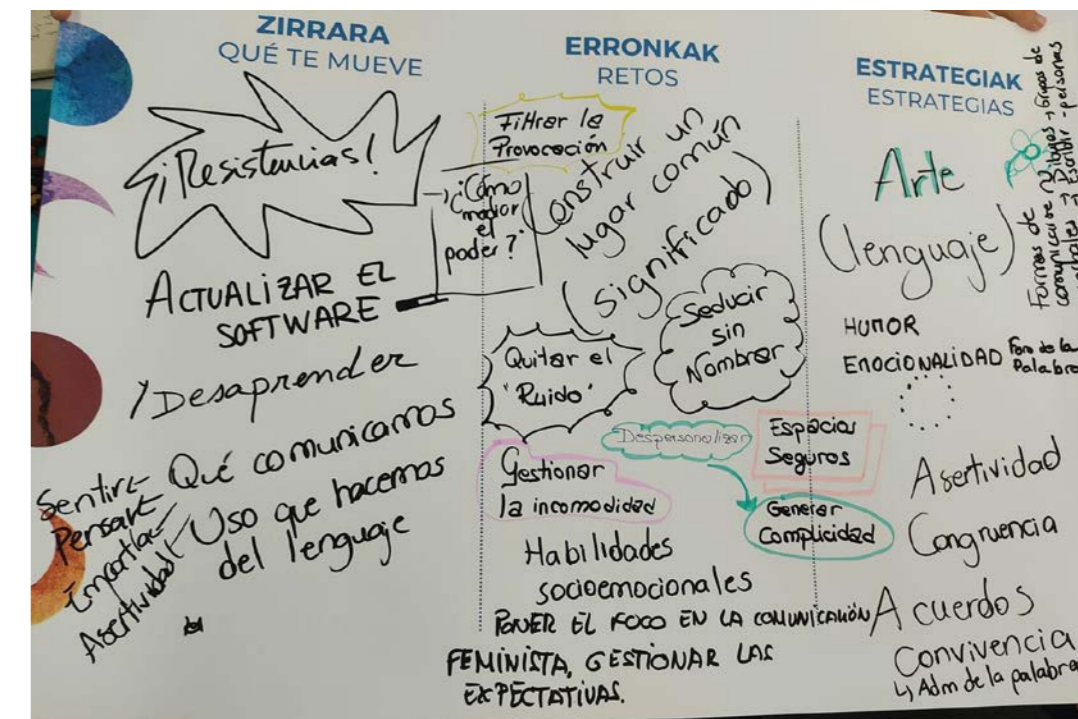 ZIRRARA
QUÉ TE MUEVE
¡Resistencias!
ACTUALIZAR EL
SOFTWARE
/Desaprender
Sentir
Pensar
Asertividad
Qué comunicamos
Uso que hacemos
del lenguaje
ERRONKAK
RETOS
Filtrar la
Provocación
¿Cómo
medior
el
poder?
Construir un
lugar común
(significado)
Seducir
sin
Nombrar
Quitar el
"Ruido"
Despersonalizar
Espacios
Seguros
Gestionar
la incomodidad
Generar
Complicidad
Habilidades
socioemocionales
PONER EL FOCO EN LA COMUNICACIÓN
FEMINISTA, GESTIONAR LAS
EXPECTATIVAS.
ESTRATEGIAK
ESTRATEGIAS
Arte
(lenguaje)
Formas de
comunicarse
Dibujos → Grupos de
Escribir - personas
HUMOR
EMOCIONALIDAD
Foro de la
Palabra
Asertividad
Congruencia
Acuerdos
Convivencia
↳ Adm de la palabra